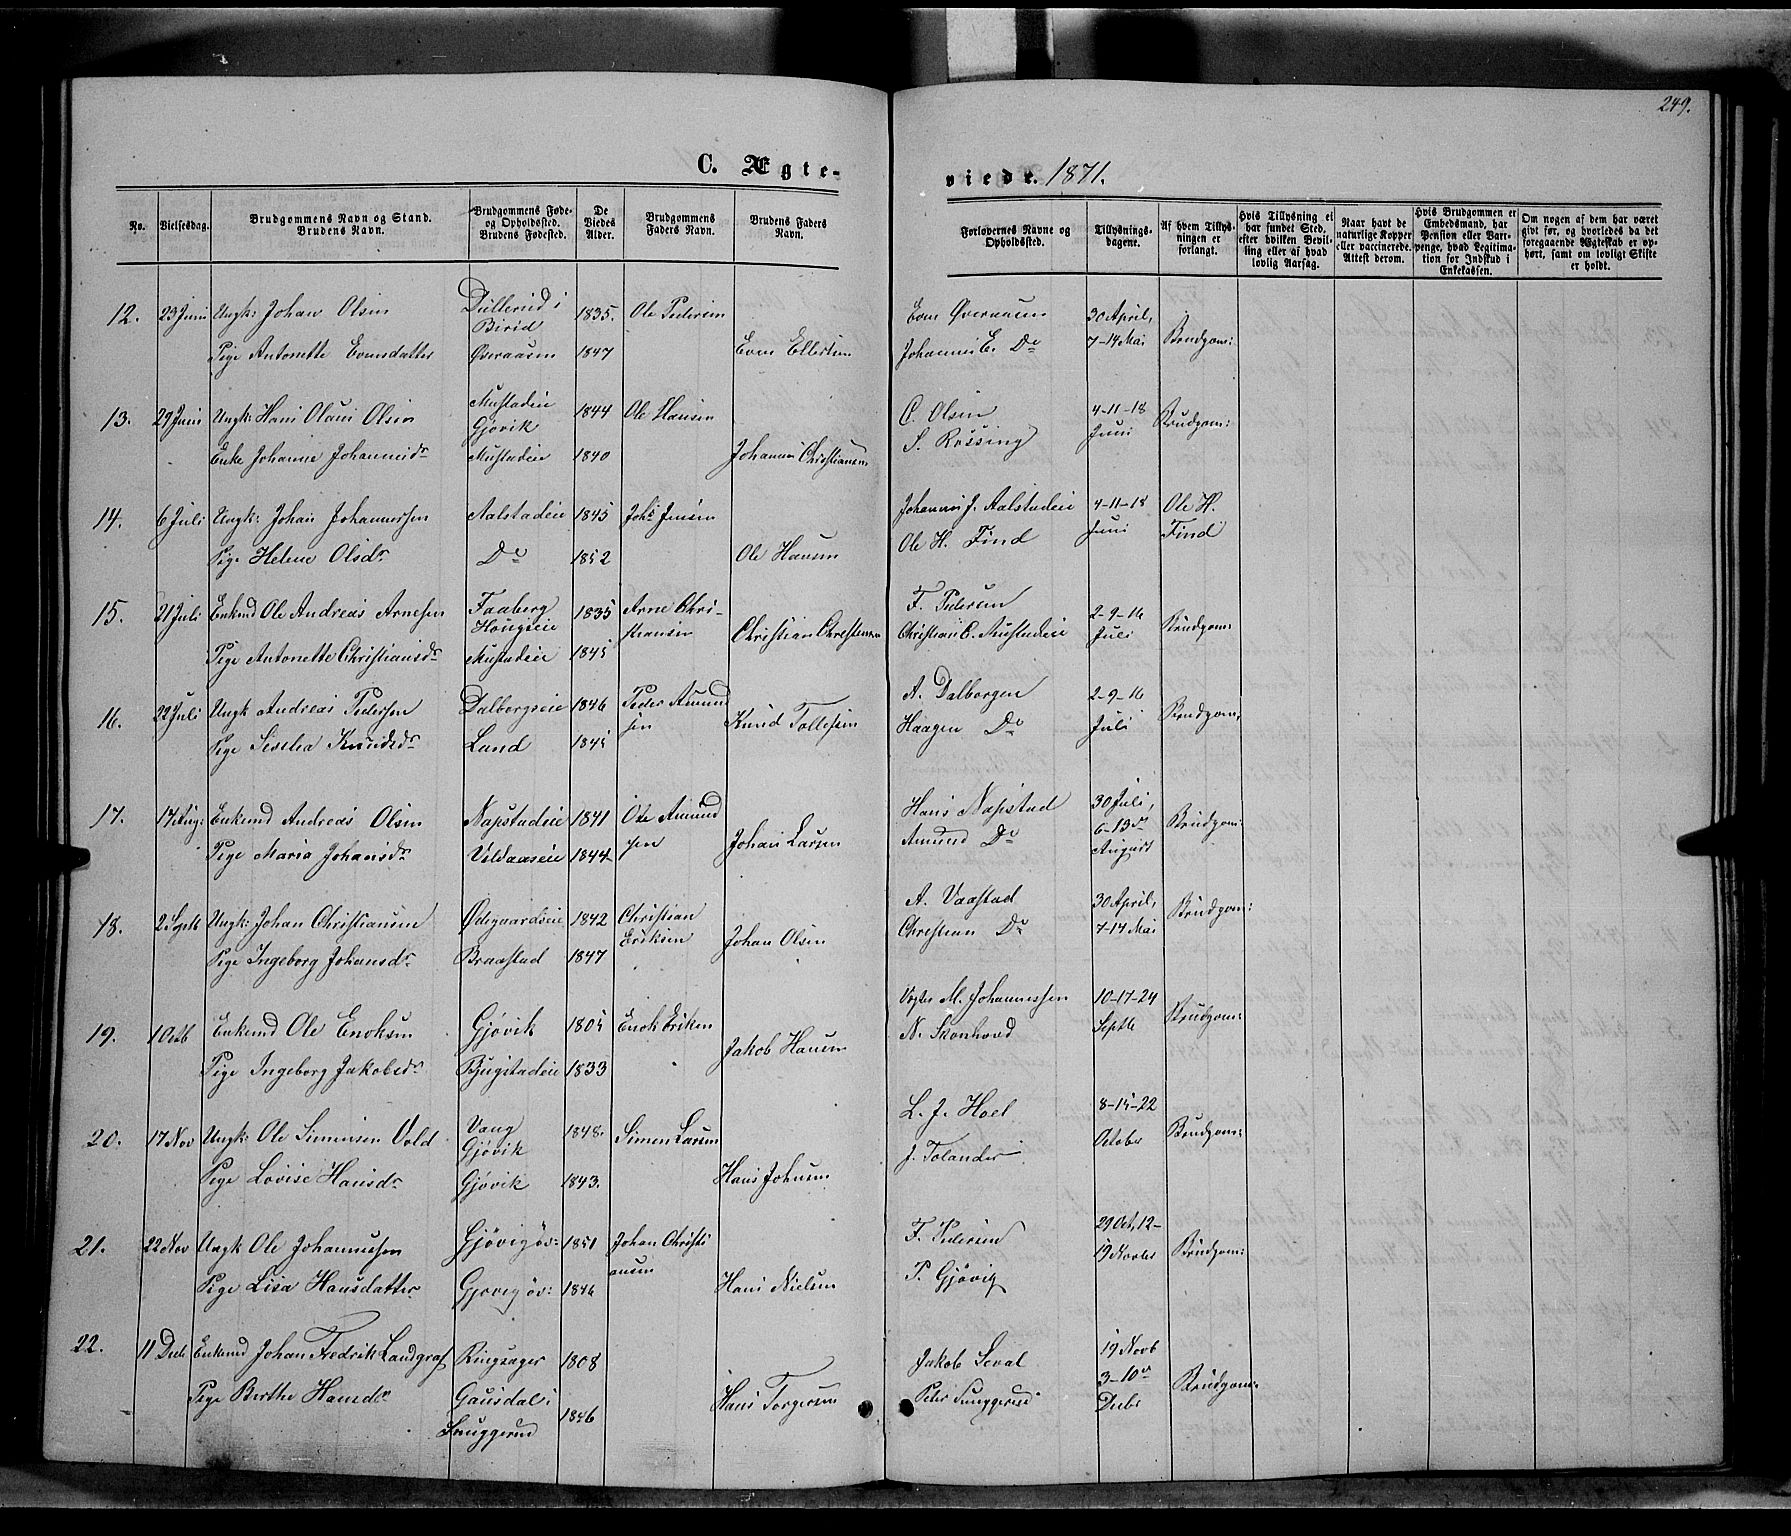 249.
C. Ægte-
viede. 1871.
No.
Vielsesdag.
Brudgommens Navn og Stand.
Brudens Navn.
Brudgommens Føde-
og Opholdsted.
Brudens Fødested.
De
Viedes
Alder.
Brudgommens
Faders Navn.
Brudens Faders
Navn.
Forlovernes Navne og
Opholdsted.
Tillysnings-
dagene.
Af hvem Tillys-
ningen er
forlangt.
Hvis Tillysning ei
har fundet Sted,
efter hvilken Bevil-
ling eller af hvad
lovlig Aarsag.
Naar havt de
naturlige Kopper
eller vaccinerede.
Attest derom.
Hvis Brudgommen er
Embedsmand, har
Pension eller Var-
penge, hvad Legitima-
tion for Indskud i
Enkekassen.
Om nogen af dem har været
givt før, og hvorledes da det
foregaaende Ægteskab er op-
hørt, samt om lovligt Skifte
er holdt.
12. 23 Juni Ungk: Johan Olsen Dullerud i Birid 1835. Ole Pedersen
Pige Antonette Evensdatter Øveraasen 1847 Even Ellertsen
Even Øveraasen 30 April,
Johannes E. Do 7-14 Mai Brudgom:
13. 29 Juni Ungk: Hans Olaus Olsen Mustadeie Gjøvik 1844 Ole Hansen
Enke Johanne Johannesdr Mustadeie 1840 Johannes Christiansen
C. Olsen 4-11-18
S. Røssing Juni Brudgom:
14. 6 Juli Ungk: Johan Johannessen Aalstadeie 1845 Johs Jensen
Pige Helene Olsdr Do 1852 Ole Hansen
Johannes J. Aalstadeie 4-11-18 Ole H.
Ole H. Find Juni Find
15. 21 Juli Enkmd Ole Andreas Arnesen Faaberg Hougseie 1835 Arne Chri-
stiansen
Pige Antonette Christiansdr Mustadeie 1845 Christian Christensen
F. Pedersen 2-9-16
Christian C. Mustadeie Juli Brudgom:
16. 22 Juli Ungk Andreas Pedersen Dalborgseie 1846 Peder Amund
sen
Pige Siselia Knudsdr Land 1845 Knud Tollefsen
A. Dalborgen 2-9-16
Haagen Do Juli Brudgom,
17. 14 Aug: Enkmd Andreas Olsen Napstadeie 1841 Ole Amund
sen
Pige Maria Johansdr Veldaaseie 1844 Johan Larsen
Hans Napstad 30 Juli,
Amund Do 6-13de August Brudgom:
18. 2 Septb Ungk: Johan Christiansen Ødegaardseie 1842 Christian
Eriksen
Pige Ingeborg Johansdr Braastad 1847 Johan Olsen
A. Vaastad 30 April,
Christian Do 7-14 Mai Brudgom:
19. 1 Octb Enkmd Ole Enoksen Gjøvik 1805 Enok Eriksen
Pige Ingeborg Jakobsdr Bjugstadeie 1833 Jakob Hansen
Vogter M. Johannessen 10-17-24
N. Skonhovd Septb Brudgom:
20. 17 Nov Ungk: Ole Simensen Vold Vang Gjøvik 1848. Simen Larsen
Pige Lovise Hansdr Gjøvik 1843. Hans Johnsen
L. J. Hoel 8-15-22
J. Tolander October Brudgom:
21. 22 Nov Ungk Ole Johannessen Gjøvigøv: 1851 Johan Christi
ansen
Pige Lisa Hansdatter Gjøvigøv: 1846 Hans Nielsen
F. Pedersen 29 Oct, 12-
P. Gjøvig 19 Novbr Brudgom:
22. 11 Decb Enkmd Johan Fredrik Landgraf Ringsager 1808
Pige Berthe Hansdr Gausdal i Snuggerud 1846 Hans Torgersen
Jakob Seval 19 Novb
Peter Snuggerud 3-10de Decbr Brudgom: